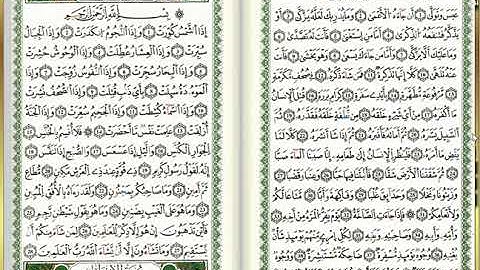 عَبَسَ وَتَوَلَّىٰ ١ أَن جَاءَهُ الْأَعْمَىٰ ٢ وَمَا يُدْرِيكَ لَعَلَّهُ يَزَّكَّىٰ ٣
أَوْ يَذَّكَّرُ فَتَنفَعَهُ الذِّكْرَىٰ ٤ أَمَّا مَنِ اسْتَغْنَىٰ ٥ فَأَنتَ لَهُ تَصَدَّىٰ ٦
وَمَا عَلَيْكَ أَلَّا يَزَّكَّىٰ ٧ وَأَمَّا مَن جَاءَكَ يَسْعَىٰ ٨ وَهُوَ يَخْشَىٰ ٩ فَأَنتَ
عَنْهُ تَلَهَّىٰ ١٠ كَلَّا إِنَّهَا تَذْكِرَةٌ ١١ فَمَن شَاءَ ذَكَرَهُ ١٢ فِي صُحُفٍ مُّكَرَّمَةٍ ١٣
مَّرْفُوعَةٍ مُّطَهَّرَةٍ ١٤ بِأَيْدِي سَفَرَةٍ ١٥ كِرَامٍ بَرَرَةٍ ١٦ قُتِلَ الْإِنسَانُ
مَا أَكْفَرَهُ ١٧ مِنْ أَيِّ شَيْءٍ خَلَقَهُ ١٨ مِن نُّطْفَةٍ خَلَقَهُ فَقَدَّرَهُ ١٩ ثُمَّ
السَّبِيلَ يَسَّرَهُ ٢٠ ثُمَّ أَمَاتَهُ فَأَقْبَرَهُ ٢١ ثُمَّ إِذَا شَاءَ أَنشَرَهُ ٢٢ كَلَّا لَمَّا
يَقْضِ مَا أَمَرَهُ ٢٣ فَلْيَنظُرِ الْإِنسَانُ إِلَىٰ طَعَامِهِ ٢٤ أَنَّا صَبَبْنَا الْمَاءَ صَبًّا
٢٥ ثُمَّ شَقَقْنَا الْأَرْضَ شَقًّا ٢٦ فَأَنبَتْنَا فِيهَا حَبًّا ٢٧ وَعِنَبًا وَقَضْبًا ٢٨
وَزَيْتُونًا وَنَخْلًا ٢٩ وَحَدَائِقَ غُلْبًا ٣٠ وَفَاكِهَةً وَأَبًّا ٣١ مَّتَاعًا لَّكُمْ
وَلِأَنْعَامِكُمْ ٣٢ فَإِذَا جَاءَتِ الصَّاخَّةُ ٣٣ يَوْمَ يَفِرُّ الْمَرْءُ مِنْ أَخِيهِ ٣٤
وَأُمِّهِ وَأَبِيهِ ٣٥ وَصَاحِبَتِهِ وَبَنِيهِ ٣٦ لِكُلِّ امْرِئٍ مِّنْهُمْ يَوْمَئِذٍ شَأْنٌ
يُغْنِيهِ ٣٧ وُجُوهٌ يَوْمَئِذٍ مُّسْفِرَةٌ ٣٨ ضَاحِكَةٌ
بِسْمِ اللَّهِ الرَّحْمَٰنِ الرَّحِيمِ
إِذَا الشَّمْسُ كُوِّرَتْ ١ وَإِذَا النُّجُومُ انكَدَرَتْ ٢ وَإِذَا الْجِبَالُ
سُيِّرَتْ ٣ وَإِذَا الْعِشَارُ عُطِّلَتْ ٤ وَإِذَا الْوُحُوشُ حُشِرَتْ
٥ وَإِذَا الْبِحَارُ سُجِّرَتْ ٦ وَإِذَا النُّفُوسُ زُوِّجَتْ ٧ وَإِذَا
الْمَوْءُودَةُ سُئِلَتْ ٨ بِأَيِّ ذَنبٍ قُتِلَتْ ٩ وَإِذَا الصُّحُفُ نُشِرَتْ
١٠ وَإِذَا السَّمَاءُ كُشِطَتْ ١١ وَإِذَا الْجَحِيمُ سُعِّرَتْ ١٢ وَإِذَا الْجَنَّةُ
أُزْلِفَتْ ١٣ عَلِمَتْ نَفْسٌ مَّا أَحْضَرَتْ ١٤ فَلَا أُقْسِمُ بِالْخُنَّسِ ١٥
الْجَوَارِ الْكُنَّسِ ١٦ وَاللَّيْلِ إِذَا عَسْعَسَ ١٧ وَالصُّبْحِ إِذَا تَنَفَّسَ
١٨ إِنَّهُ لَقَوْلُ رَسُولٍ كَرِيمٍ ١٩ ذِي قُوَّةٍ عِندَ ذِي الْعَرْشِ مَكِينٍ ٢٠ مُّطَاعٍ
ثَمَّ أَمِينٍ ٢١ وَمَا صَاحِبُكُم بِمَجْنُونٍ ٢٢ وَلَقَدْ رَآهُ بِالْأُفُقِ الْمُبِينِ
٢٣ وَمَا هُوَ عَلَى الْغَيْبِ بِضَنِينٍ ٢٤ وَمَا هُوَ بِقَوْلِ شَيْطَانٍ رَّجِيمٍ
٢٥ فَأَيْنَ تَذْهَبُونَ ٢٦ إِنْ هُوَ إِلَّا ذِكْرٌ لِّلْعَالَمِينَ ٢٧ لِمَن شَاءَ مِنكُمْ أَن
يَسْتَقِيمَ ٢٨ وَمَا تَشَاءُونَ إِلَّا أَن يَشَاءَ اللَّهُ رَبُّ الْعَالَمِينَ ٢٩